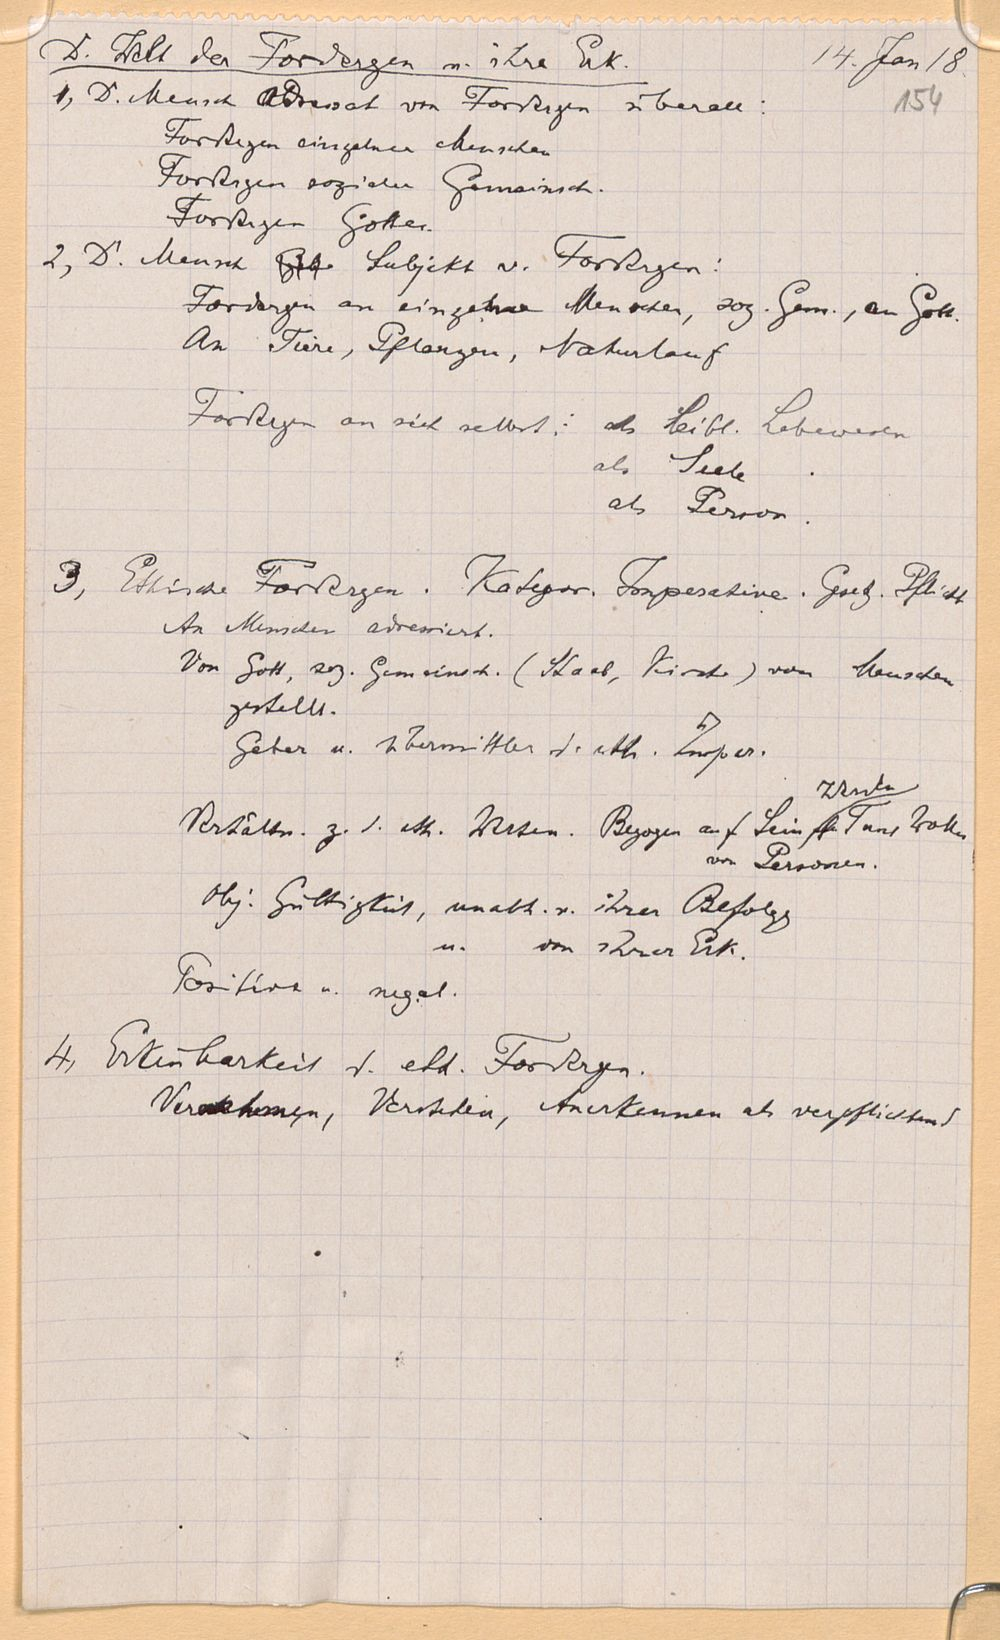 D. Welt der Fordergen u. ihre Erk. 14. Jan 18.
154
1, D. Mensch Adressat von Fordergen überall:
Fordergen einzelner Menschen
Fordergen sozialer Gemeinsch.
Fordergen Gottes.
2, D. Mensch Subjekt v. Fordergen:
Fordergen an einzelne Menschen, soz. Gem., an Gott.
An Tiere, Pflanzen, Naturlauf
Fordergen an sich selbst: als leibl. Lebewesen
als Seele
als Person.
3, Ethische Fordergen. Kategor. Imperative. Gesetz. Pflicht
An Menschen adressiert.
Von Gott, soz. Gemeinsch. (Staat, Kirche) von Menschen
gestellt.
Geber u. Übermittler d. eth. Imper.
Verhältn. z. d. eth. Werten. Bezogen auf Sein Tun Wollen
werden
von Personen.
Obj. Gültigkeit, unabh. v. ihrer Befolgg
u. von ihrer Erk.
Positive u. negat.
4, Erkennbarkeit d. eth. Fordergen.
Vernehmen, Verstehen, Anerkennen als verpflichtend